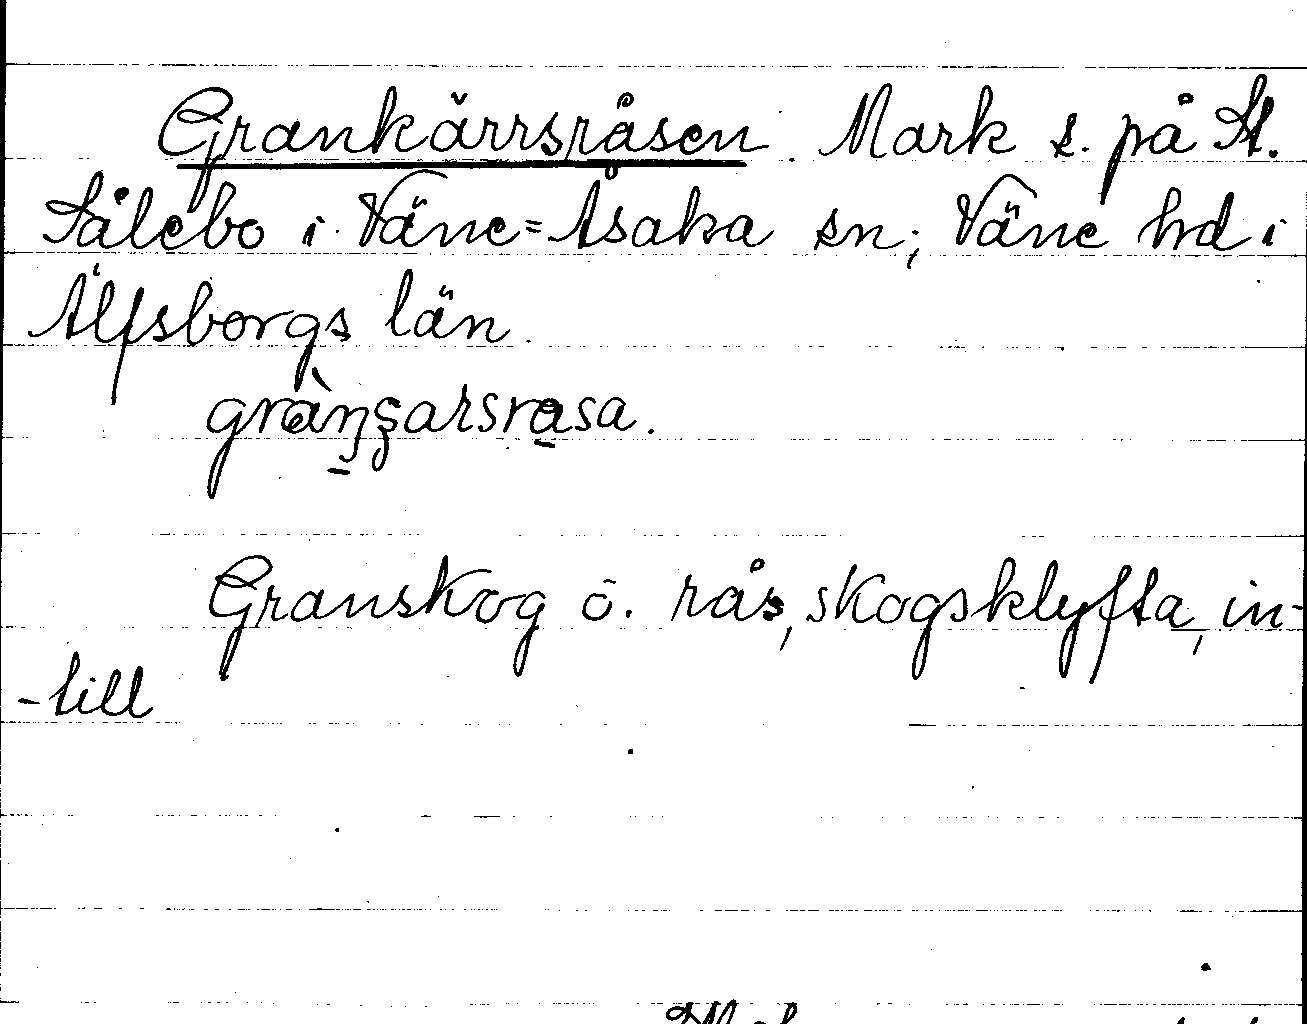 Grankärrsråsen. Mark s. på St.
Sålebo i Väne=Åsaka sn; Väne hd i
Älfsborgs län.
Granskog o. rås, skogsklyfta, in-
-till